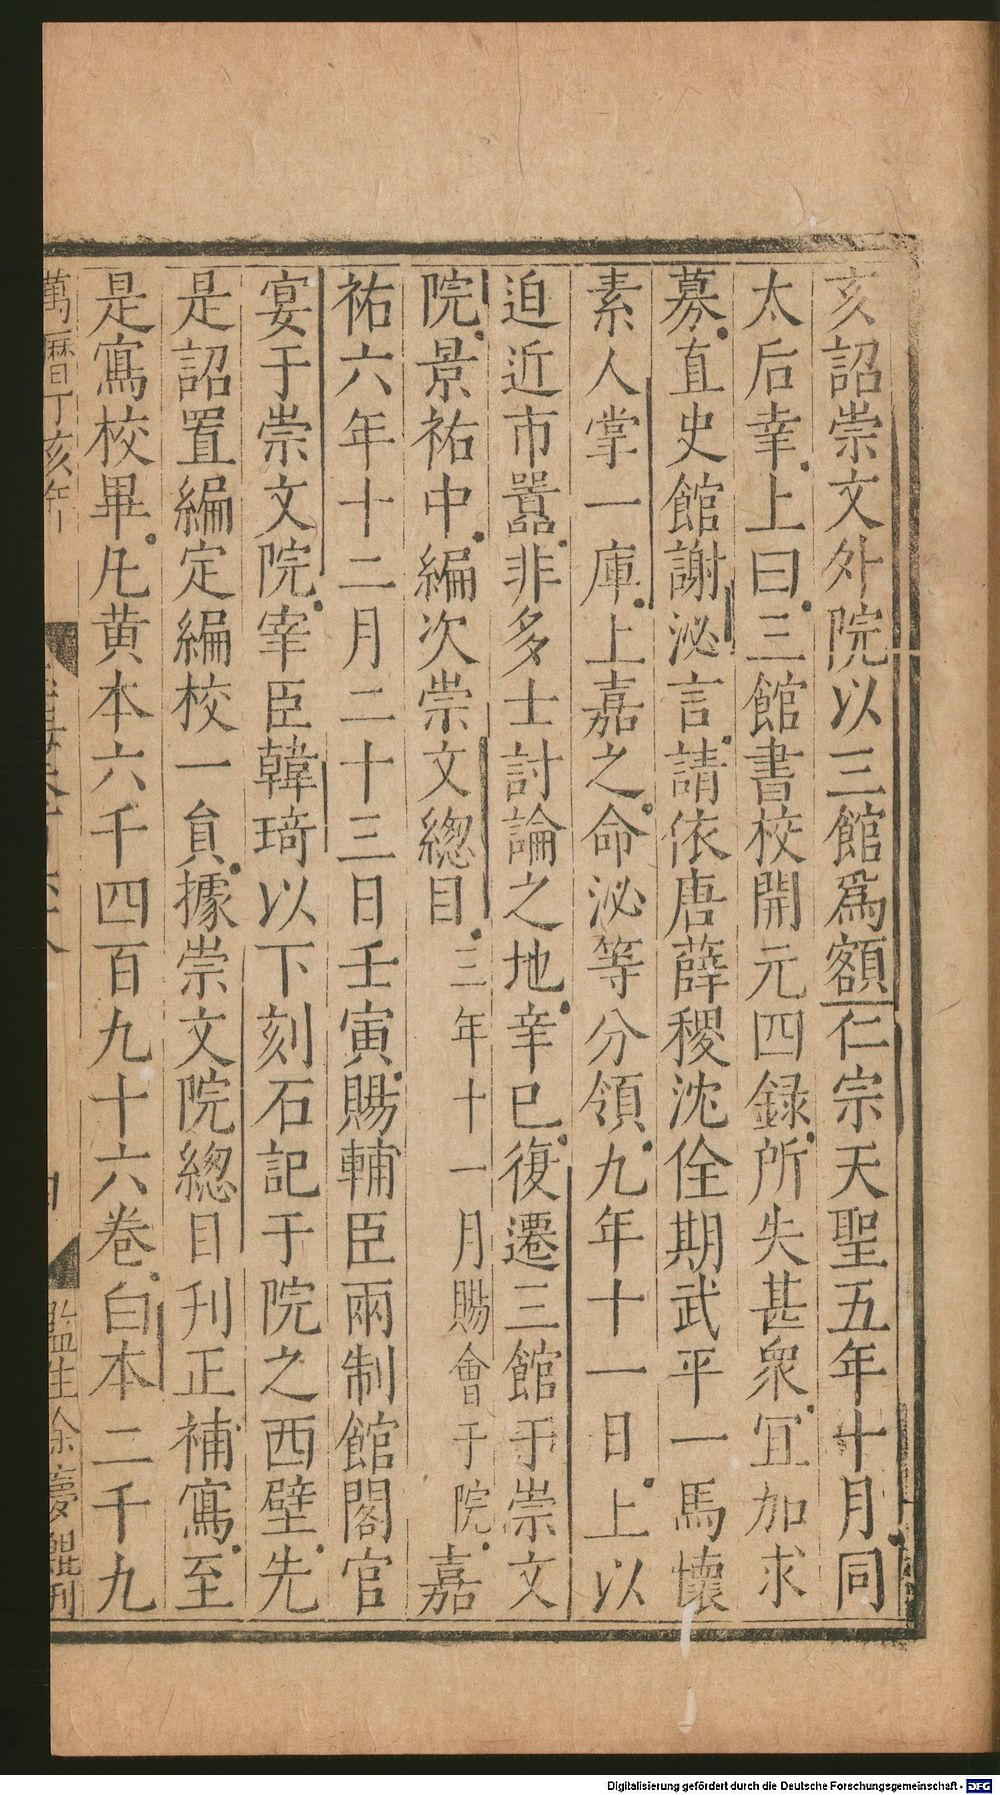 亥詔崇文外院以三館爲額仁宗天聖五年十月同
太后幸上曰三館書校開元四録所失甚衆冝加求
募直史館謝泌言請依唐薛稷沈佺期武平一馬懷
素人掌一庫上嘉之命泌等分領九年十一日上以
迫近市囂非多士討論之地辛巳復遷三館于崇文
院景祐中編次崇文緫目三年十一月賜會于院嘉
祐六年十二月二十三日壬寅賜輔臣兩制館閣官
宴于崇文院宰臣韓琦以下刻石記于院之西壁先
是詔置編定編校一負據崇文院緫目刋正補寫至
是寫校畢凡黄本六千四百九十六卷白本二千九
萬曆丁亥年
監生余夢鯤刋
Digitalisierung gefördert durch die Deutsche Forschungsgemeinschaft - DFG